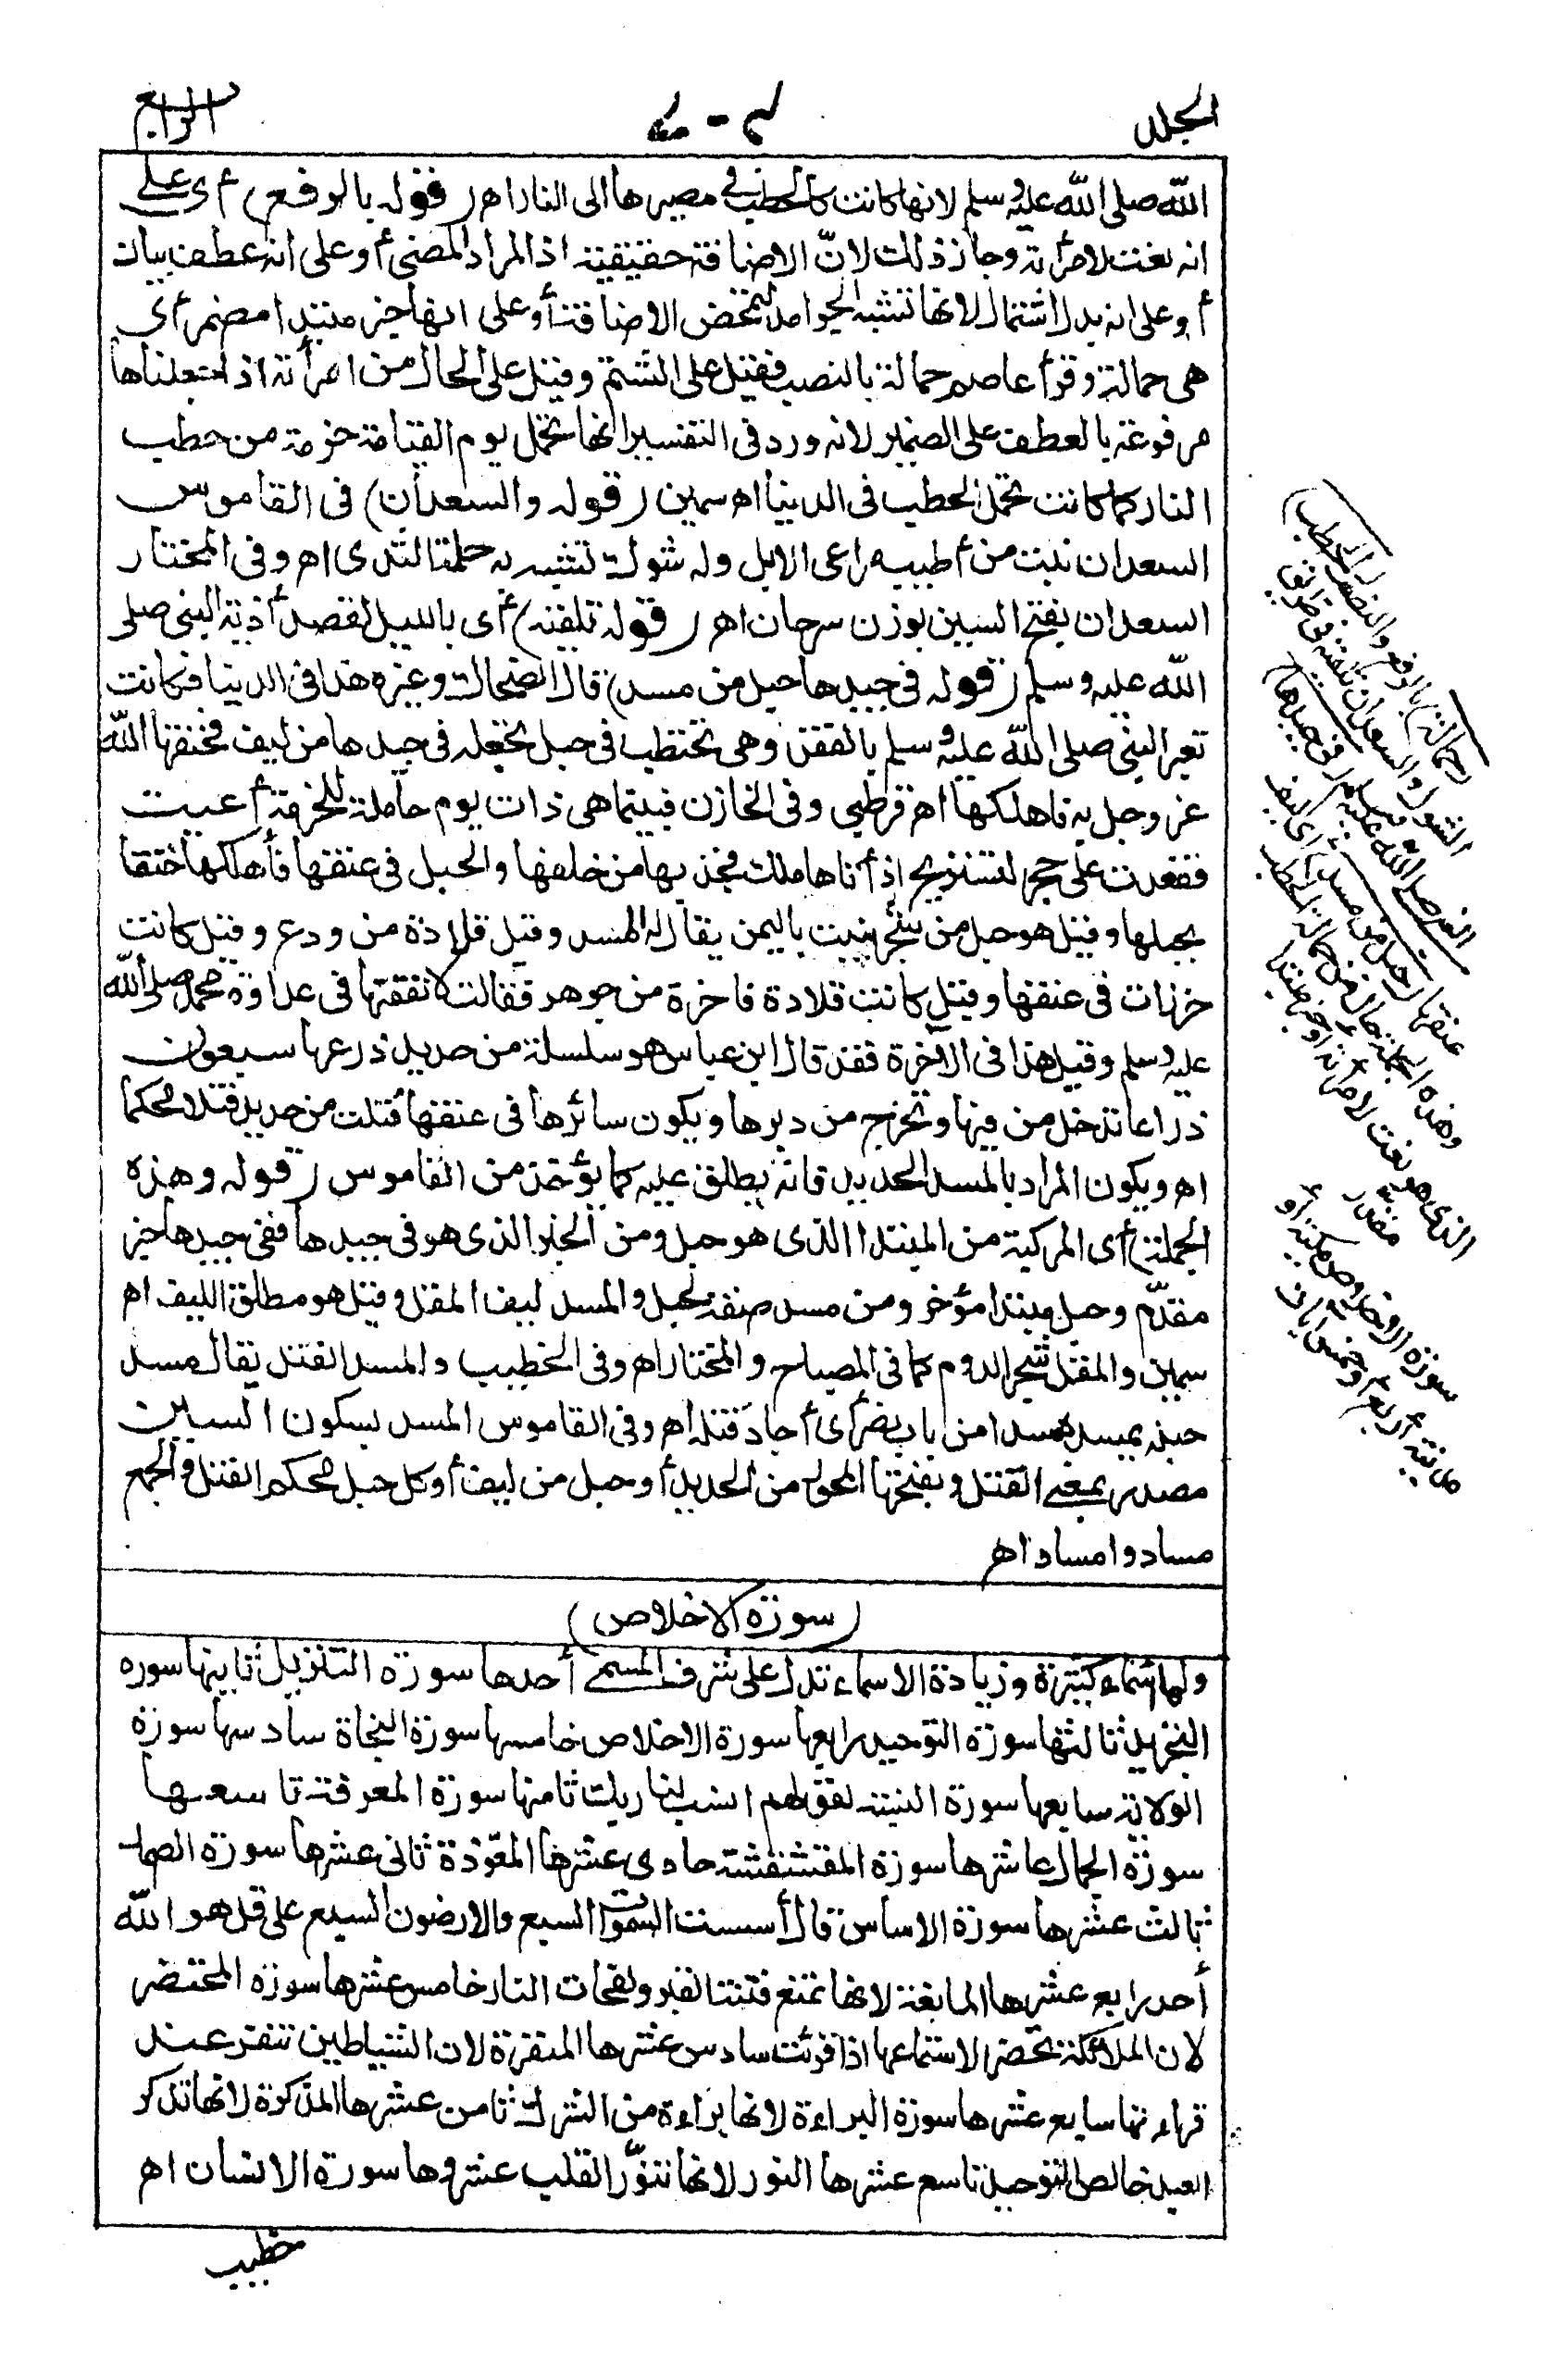 الجلد
الرابع
الله صلى الله عليه وسلم لانها كانت كالحطب في مصيرها الى النار اه (قوله بالرفع) أى على
انه نعت لامرأته وجاز ذلك لانّ الاضافة حقيقية اذ المراد المضى أو على انه عطف بيان
أو على انه بدل اشتمال لانها تشبه الجوامد لتمحض الاضافة أو على انها خبر مبتدا مضمر أى
هى حمالة وقرأ عاصم حمالة بالنصب فقيل على الشتم وقيل على الحال من امرأته اذا جعلناها
مرفوعة بالعطف على الضمير لانه ورد فى التفسير انها تحمل يوم القيامة حزمة من حطب
النار كما كانت تحمل الحطب فى الدنيا اه سمين (قوله والسعدان) فى القاموس
السعدان نبت من أطيب مراعى الابل وله شوك تشبه به حلمة الثدى اه وفى المختار
السعدان بفتح السين بوزن سرحان اه (قوله تلقيه) أى بالليل لقصد أذية النبى صلى
الله عليه وسلم (قوله فى جيدها حبل من مسد) قال الضحاك وغيره هذا فى الدنيا فكانت
تعير النبى صلى الله عليه وسلم بالفقر وهى تحتطب فى حبل تجعله فى جيدها من ليف فخنقها الله
عز وجل به فاهلكها اه قرطبى وفى الخازن فبينما هى ذات يوم حاملة للحزمة أعيت
فقعدت على حجر لتستريح اذ أتاها ملك فجذبها من خلفها والحبل فى عنقها فأهلكها خنقا
بحبلها وقيل هو حبل من شجر ينبت باليمن يقال له المسد وقيل قلادة من ودع وقيل كانت
خرزات فى عنقها وقيل كانت قلادة فاخرة من جوهر فقالت لانفقتها فى عداوة محمد صلى الله
عليه وسلم وقيل هذا فى الاخرة فقد قال ابن عباس هو سلسلة من حديد ذرعها سبعون
ذراعا تدخل من فيها وتخرج من دبرها ويكون سائرها فى عنقها فتلت من حديد فتلا محكما
اه ويكون المراد بالمسد الحديد فانه يطلق عليه كما يؤخذ من القاموس (قوله وهذه
الجملة) أى المركبة من المبتدا الذى هو حبل ومن الخبر الذى هو فى جيدها ففى جيدها خبر
مقدّم وحبل مبتدا مؤخر ومن مسد صفة لحبل والمسد ليف المقل وقيل هو مطلق الليف اه
سمين والمقل شجر الدوم كما فى المصباح والمختار اه وفى الخطيب والمسد الفتل يقال مسد
حبله يمسده مسدا من باب نصر أى أجاد فتله اه وفى القاموس المسد بسكون السين
مصدر بمعنى الفتل وبفتحها المحور من الحديد أو حبل من ليف أو كل حبل محكم الفتل والجمع
مساد وامساد اه
(سورة الاخلاص)
ولها أسماء كثيرة وزيادة الاسماء تدل على شرف المسمى أحدها سورة التنزيل ثانيها سوره
التجريد ثالثها سورة التوحيد رابعها سورة الاخلاص خامسها سورة النجاة سادسها سورة
الولاية سابعها سورة النسبة لقولهم انسب لنا ربك ثامنها سورة المعرفة تاسعها
سورة الجمال عاشرها سورة المقشقشة حادى عشرها المعوّذة ثانى عشرها سورة الصمد
ثالث عشرها سورة الاساس قال أسست السموات السبع والارضون السبع على قل هو الله
أحد رابع عشرها المانعة لانها تمنع فتنة القبر ولفحات النار خامس عشرها سورة المحتضر
لان الملائكة تحضر لاستماعها اذا قرئت سادس عشرها المنفرة لان الشياطين تنفر عند
قراءتها سابع عشرها سورة البراءة لانها براءة من الشرك ثامن عشرها المذكرة لانها تذكر
العبد خالص التوحيد تاسع عشرها النور لانها تنوّر القلب عشروها سورة الانسان اه
خطيب
(حمالة) بالرفع والنصب (الحطب)
الشوك والسعدان تلقيه فى طريق
النبى صلى الله عليه وسلم (فى جيدها)
عنقها (حبل من مسد) أى ليف
وهذه الجملة حال من حمالة الحطب
الذى هو نعت لامرأته أو خبر مبتدا
مقدر
سورة الاخلاص مكية أو
مدنية أربع أو خمس آيات